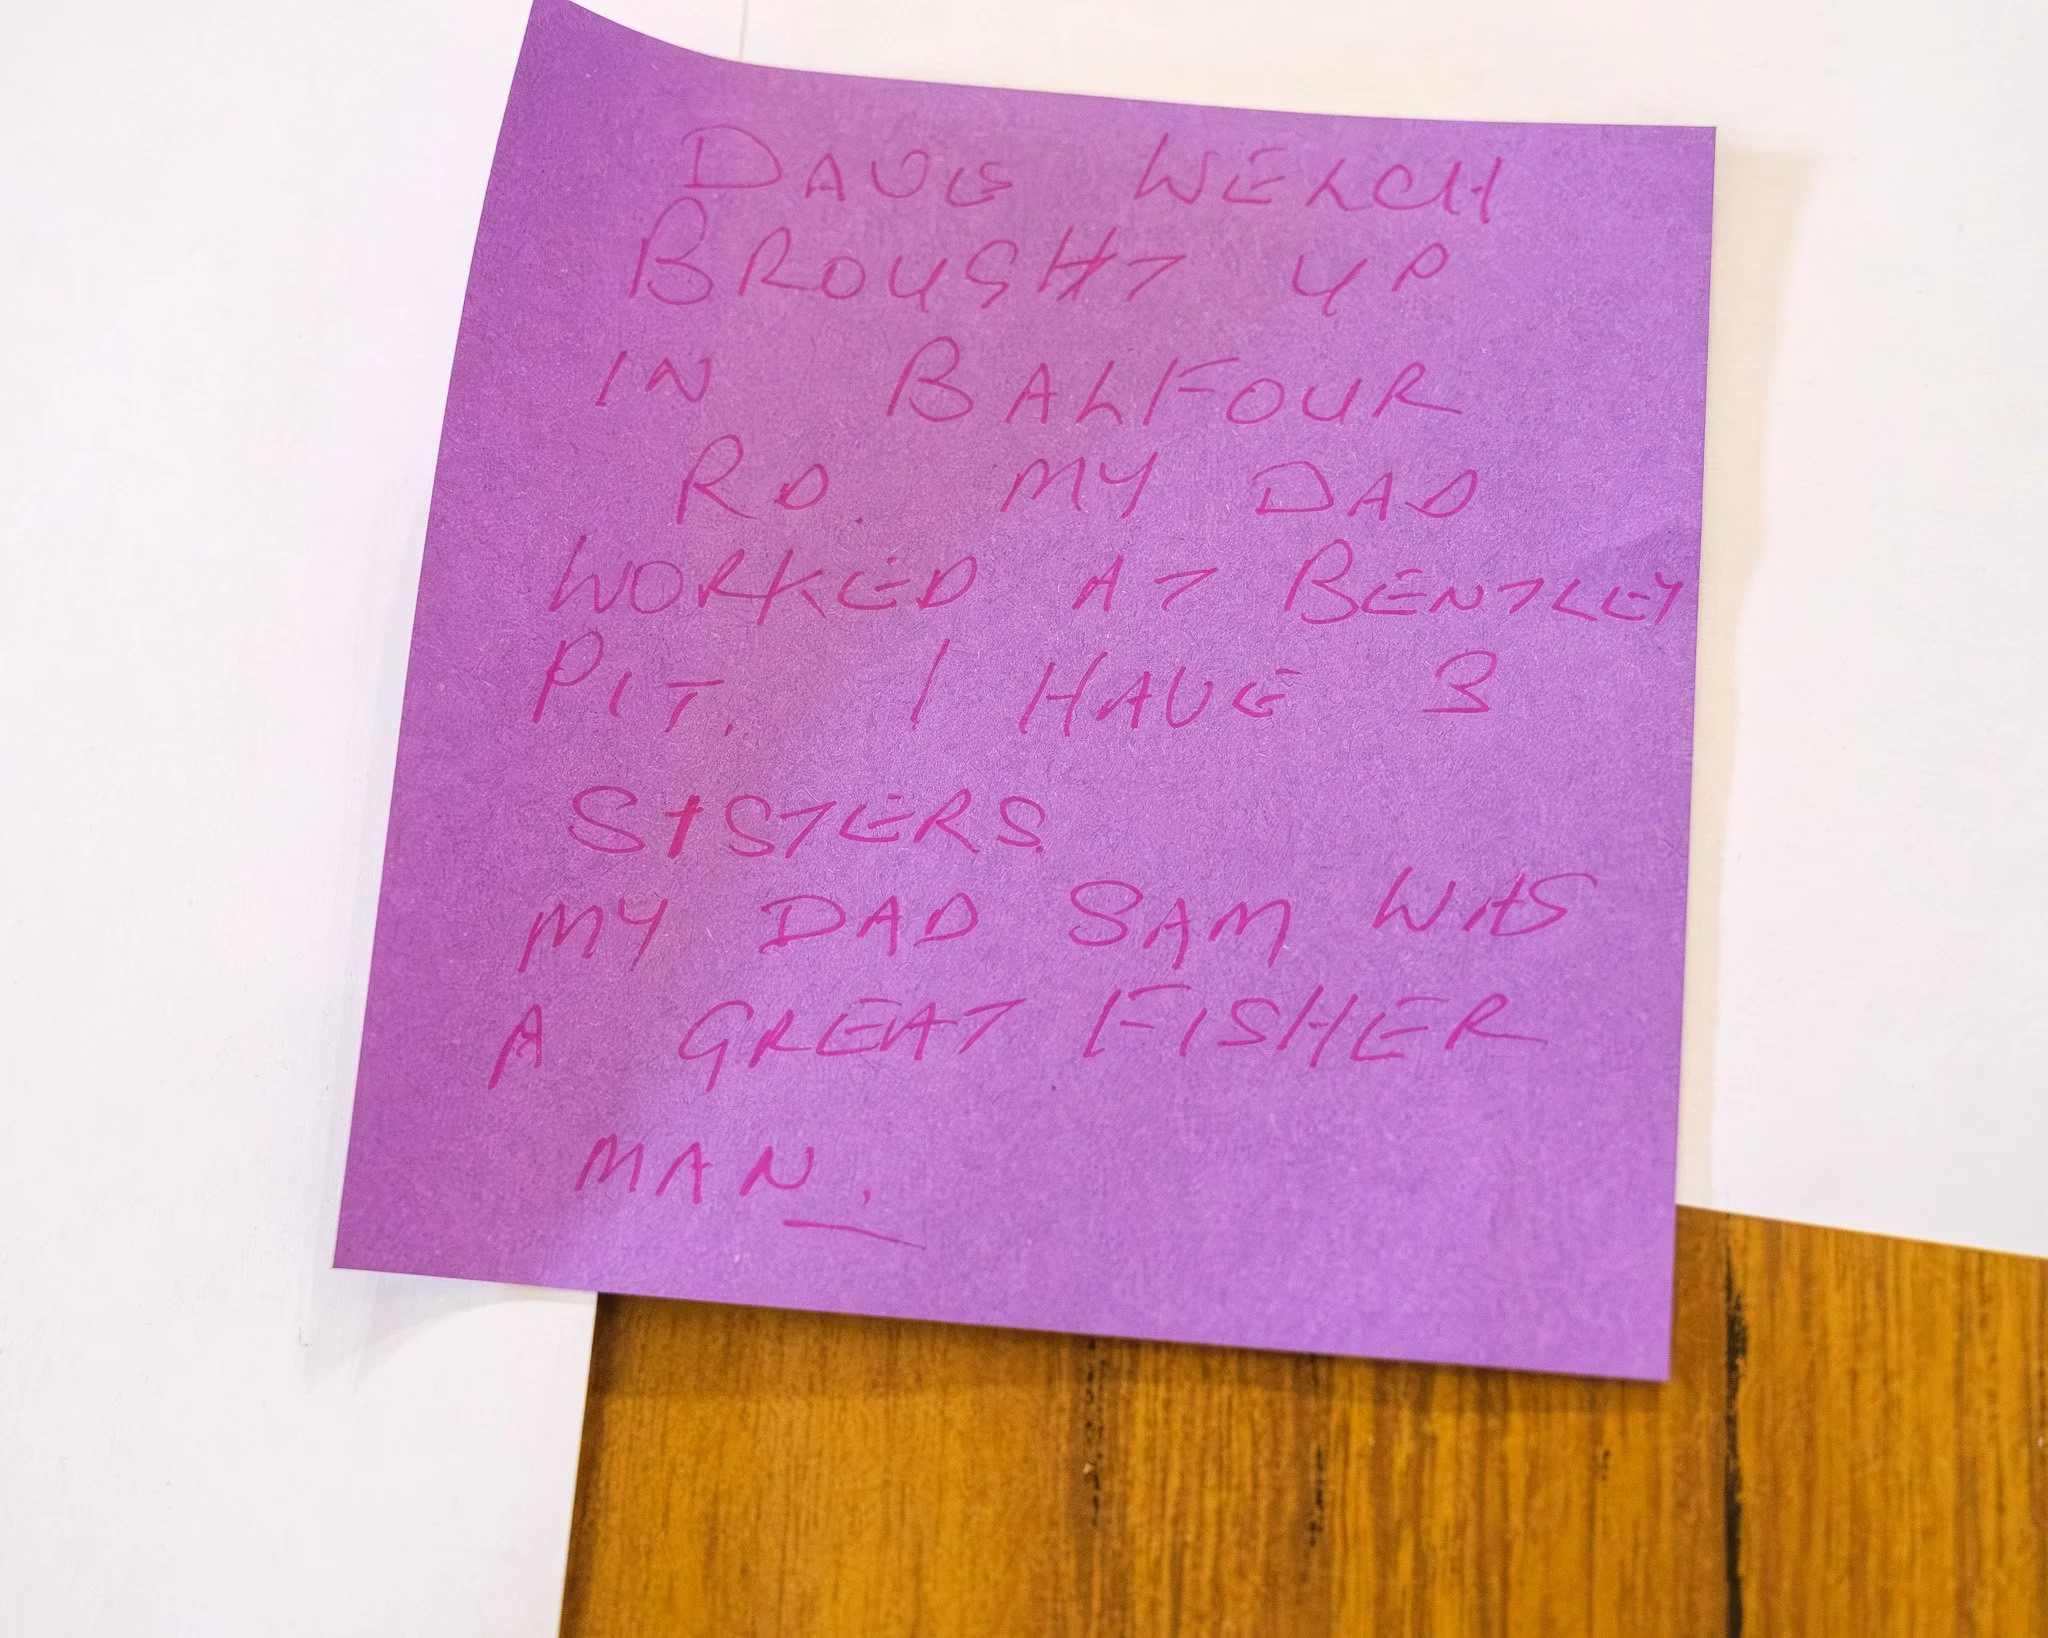 DAVE WELCH
BROUGHT UP
IN BALFOUR
RD. MY DAD
WORKED AT BENTLEY
PIT. I HAVE 3
SISTERS.
MY DAD SAM WAS
A GREAT FISHER
MAN.